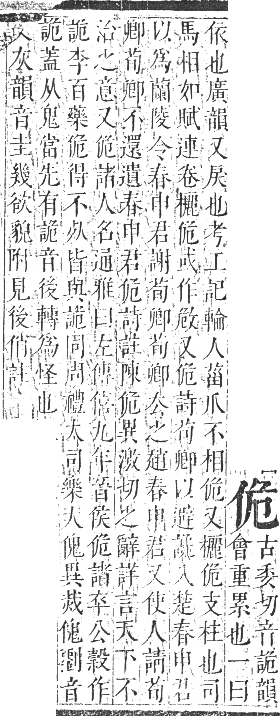 佹古委切音詭韻會重累也一曰
依也廣韻又戾也考工記輪人葘爪不相佹又欐佹支柱也司
馬相如賦連卷欐佹或作㩻又佹詩荀卿以避讒入楚春申君
以為蘭陵令春申君謝荀卿荀卿去之趙春申君又使人請荀
卿荀卿不還遺春申君佹詩註陳佹異激切之辭詳言天下不
治之意又佹諸人名通雅曰左傳僖九年晉侯佹諸卒公穀作
詭李百藥佹得不死皆與詭同周禮大司樂大傀異烖傀劉音
詭蓋从鬼當先有詭音後轉為怪也
灰韻音圭幾欲貌附見後俏註